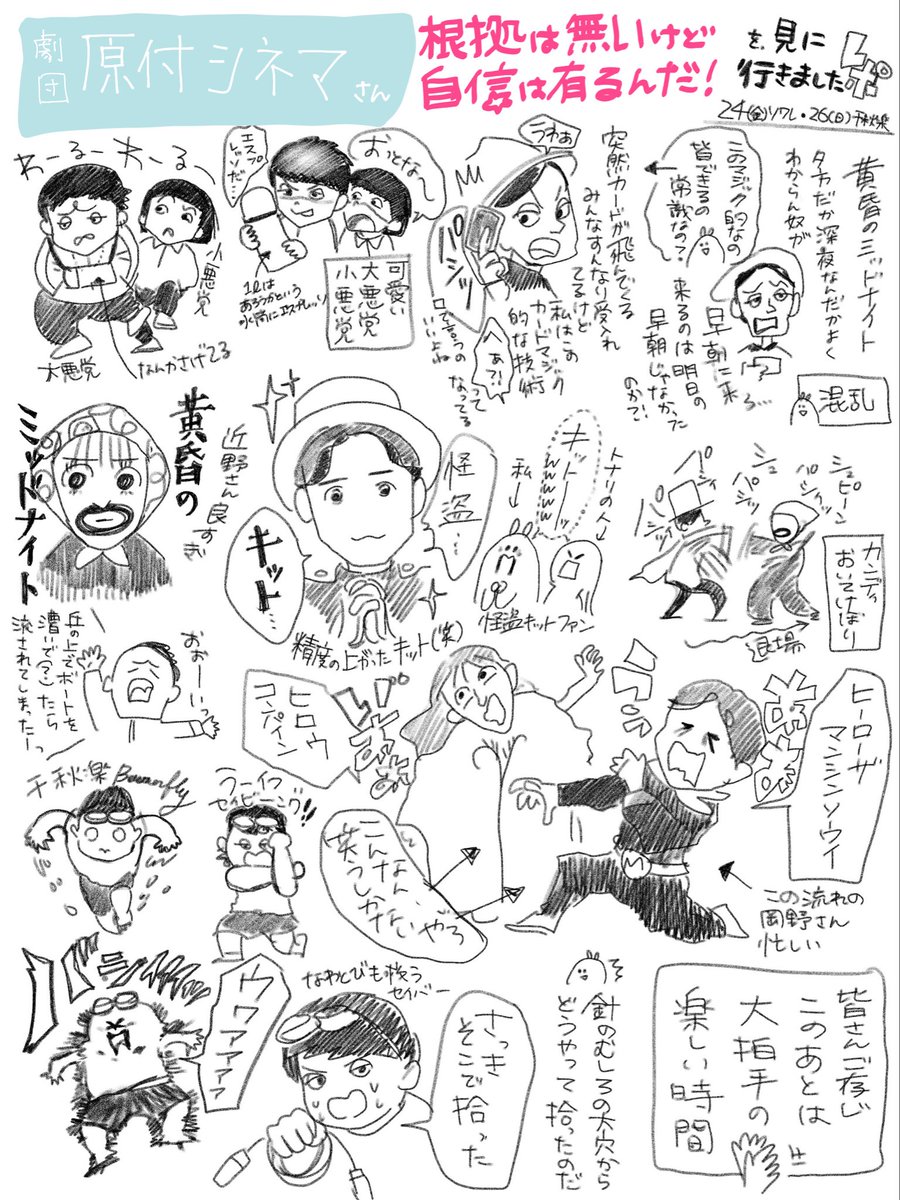 劇団
原付シネマさん
根拠は無いけど
自信は有るんだ!
を見に
行きました
レポ
24(金)ソワレ・26(日)千秋楽
わーるーわーるー
小悪党
大悪党
なんかさげてる
エスプレッソだ…
おっとなぁ〜
1ℓは
あろうかという
水筒にエスプレッソ
可愛い
大悪党
小悪党
うわぁ
突然カードが飛んでくる
みんなすんなり受入れ
てるけど
私はこの
カードマジック
的な技術
あっ!!
って
なってる
口で言うの
いいよね
このマジック的なの
皆できるの
常識なの?
黄昏のミッドナイト
夕方だか深夜なんだかよく
わからん奴が
早朝に来る…
来るのは明日の
早朝じゃなかった
のか?!
混乱
黄昏の
ミッドナイト
近野さん良すぎ
怪盗…
キット…
精度の上がったキット(笑)
キットーwwwww
トナリの人→
私→
怪盗キットファン
シュピーン
シュパッ
パシィッ
カンディ
おいてけぼり
退場
おぉーいっ
丘の上でボートを
漕いで(?)たら
流されてしまったーっ
ヒロウ
コンパイン
ヒーローザ
マシンソウイ
この流れの
岡野さん
忙しい
こんなん
笑うしか
ないやろ
千秋楽
ラーイフ
セイビーング!!
バーン
ウワァァァァ
なわとびも扱う
セイバー
さっき
そこで拾った
針のむしろの大穴から
どうやって拾ったのだ
皆さんご存じ
このあとは
大拍手の
楽しい時間